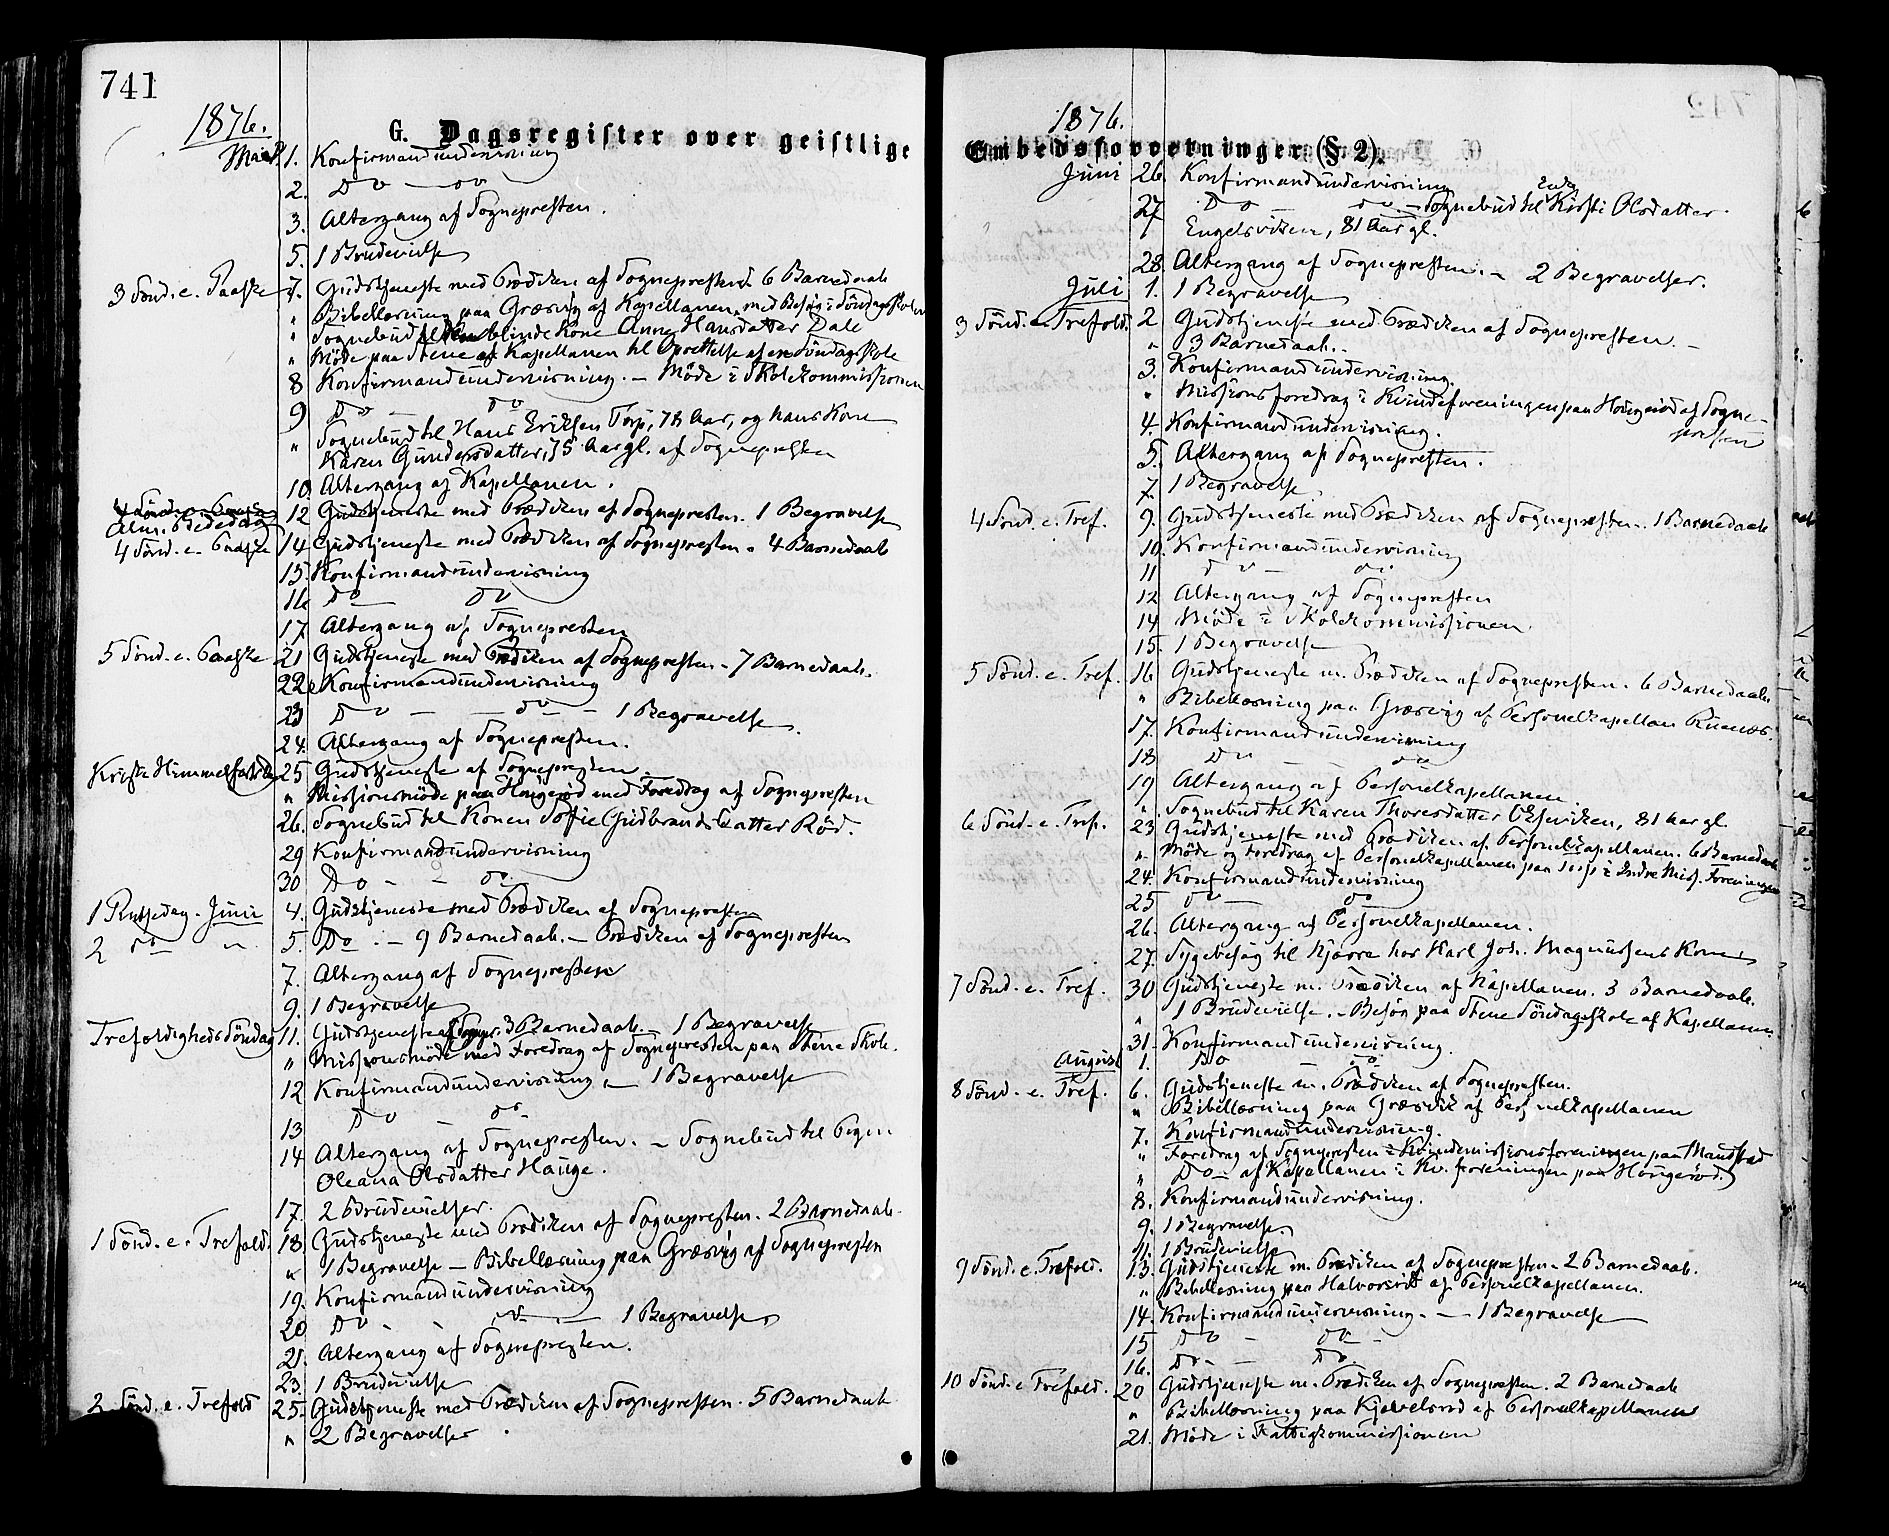 741
1876.
G. Dagsregister over geistlige
Mai 1. Konfirmandundervisning
2. Do — do
3. Altergang af Sognepresten.
5. 1 Brudevielse
3 Sönd. e. Paaske 7. Gudstjeneste med Prædiken af Sognepresten 6 Barnedaab
" Bibellæsning paa Græsvig af Kapellanen, med Besög i Söndagsskolen
" Sognebud til den blinde Kone Anne Hansdatter Dale
" Möde paa Stene af Kapellanen til Oprettelse af en Söndagsskole
8 Konfirmandundervisning. — Möde i Skolekommissionen
9 Do — do
" Sognebud til Hans Eriksen Torp, 78 Aar, og hans Kone
Karen Gundersdatter, 75 Aar gl. af Sognepresten
10. Altergang af Kapellanen.
Alm. Bededag 12 Gudstjeneste med Prædiken af Sognepresten. 1 Begravelse
4 Sönd. e. Paaske 14 Gudstjeneste med Prædiken af Sognepresten. 4 Barnedaab
15. Konfirmandundervisning
16 Do — do
17. Altergang af Sognepresten
5 Sönd. e. Paaske 21 Gudstjeneste med Prædiken af Sognepresten. 7 Barnedaab.
22 Konfirmandundervisning
23 Do — do — 1 Begravelse.
24. Altergang af Sognepresten.
Kristi Himmelfartsdag 25 Gudstjeneste af Sognepresten.
" Missionsmöde paa Haugeröd med Foredrag af Sognepresten
26. Sognebud til Konen Sofie Gudbrandsdatter Röd.
29 Konfirmandundervisning
30 Do — do.
1 Pintsedag. Juni 4. Gudstjeneste med Prædiken af Sognepresten
2 do " 5. Do. — 9 Barnedaab. — Prædiken af Sognepresten
7. Altergang af Sognepresten
9. 1 Begravelse
Trefoldigheds Söndag 11. Gudstjeneste af Sognepr. 3 Barnedaab. — 1 Begravelse
" Missionsmöde med Foredrag af Sognepresten paa Stene Skole.
12 Konfirmandundervisning. — 1 Begravelse
13 Do — do.
14 Altergang af Sognepresten. — Sognebud til Pigen
Oleana Olsdatter Hauge.
17. 2 Brudevielser.
1 Sönd. e. Trefold. 18. Gudstjeneste med Prædiken af Sognepresten. 2 Barnedaab.
" 1 Begravelse — Bibellæsning paa Græsvig af Sognepresten
19. Konfirmandundervisning
20 Do — do — 1 Begravelse
21. Altergang af Sognepresten.
23. 1 Brudevielse
2 Sönd. e. Trefold 25. Gudstjeneste med Prædiken af Sognepresten. 5 Barnedaab
" 2 Begravelser.
1876.
Embedsforretninger (§ 2).
Juni 26. Konfirmandundervisning
27 Do — do — Sognebud til Enke Kirsti Olsdatter
Engelsviken, 81 Aar gl.
28. Altergang af Sognepresten. — 2 Begravelser.
Juli 1. 1 Begravelse
3 Sönd. e. Trefold. 2 Gudstjeneste med Prædiken af Sognepresten. —
" 3 Barnedaab. —
3. Konfirmandundervisning.
" Missionsforedrag i Kvindeforeningen paa Haugeröd af Sogne-
presten
4. Konfirmandundervisning.
5. Altergang af Sognepresten.
7. 1 Begravelse
4 Sönd. e. Tref. 9. Gudstjeneste med Prædiken af Sognepresten. 1 Barnedaab
10. Konfirmandundervisning
11 do — do
12 Altergang af Sognepresten
14 Möde i Skolekommissionen.
15. 1 Begravelse
5 Sönd. e. Tref. 16 Gudstjeneste m. Prædiken af Sognepresten. 6 Barnedaab.
" Bibellæsning paa Græsvig af Personelkapellan
17. Konfirmandundervisning
18 Do do
19 Altergang af Personelkapellanen
" Sognebud til Karen Thoresdatter Elseviken, 81 Aar gl.
6 Sönd. e. Tref. 23 Gudstjeneste med Prædiken af Personelkapellanen. 6 Barnedaab
" Möde og Foredrag af Personelkapellanen paa Torp i Indre Miss. Foreningen
24. Konfirmandundervisning
25 Do — do
26. Altergang af Personelkapellanen.
27. Sygebesög til Kjærre hos Karl Joh. Magnussens Kone
7 Sönd. e. Tref. 30 Gudstjeneste m. Prædiken af Kapellanen. 3 Barnedaab.
" 1 Brudevielse. — Besög paa Stene Söndagsskole af Kapellanen.
31. Konfirmandundervisning.
August 1. Do do
8 Sönd. e. Tref. 6. Gudstjeneste m. Prædiken af Sognepresten.
" Bibellæsning paa Græsvik af Personelkapellanen
7. Konfirmandundervisning.
" Foredrag af Sognepresten i Kvindemissionsforeningen paa Saustad
" Do — af Kapellanen i Kv. foreningen paa Haugeröd.
8. Konfirmandundervisning.
9. 1 Begravelse.
11. 1 Brudevielse
9 Sönd. e. Trefold. 13. Gudstjeneste m. Prædiken af Sognepresten. 2 Barnedaab.
" Bibellæsning paa Halvorsröd af Personelkapellanen.
14. Konfirmandundervisning. — 1 Begravelse
15 Do — do —
16. Do — Do
10 Sönd. e. Trefold. 20 Gudstjeneste m. Prædiken af Sognepresten. 2 Barnedaab
" Bibellæsning paa Kjölelsröd af Personelkapellanen
21. Möde i Fattigkommissionen